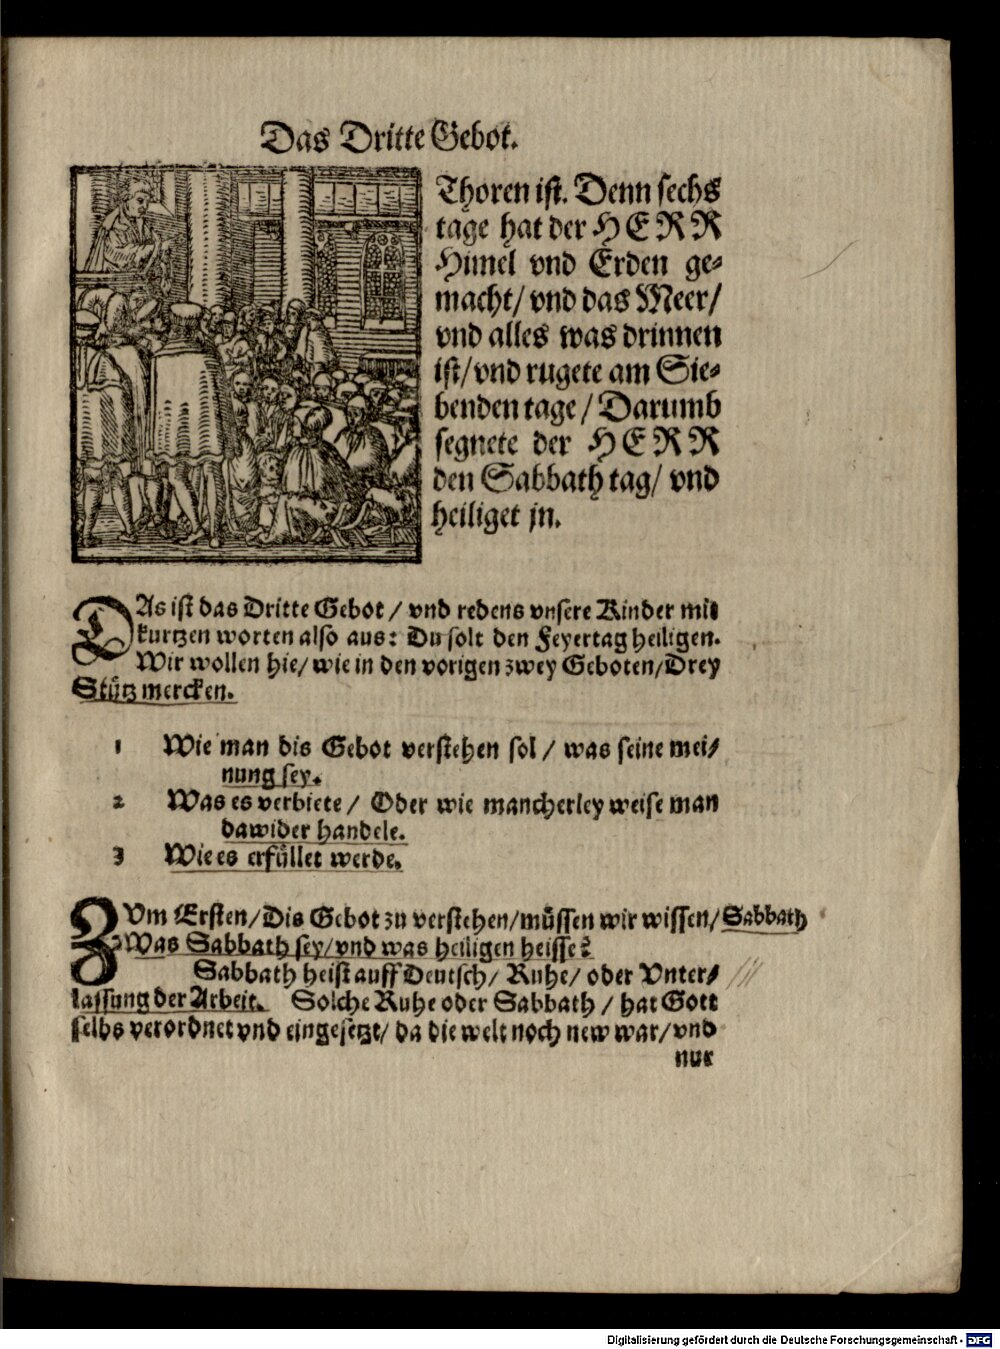 Das Dritte Gebot.
Thoren ist. Denn sechs
tage hat der HERR
Himel vnd Erden ge-
macht/ vnd das Meer/
vnd alles was drinnen
ist/ vnd rugete am Sie-
benden tage / Darumb
segnete der HERR
den Sabbath tag/ vnd
heiliget jn.
DAs ist das Dritte Gebot / vnd redens vnsere Kinder mit
kurtzen worten also aus: Du solt den Feyertag heiligen.
Wir wollen hie/ wie in den vorigen zwey Geboten/ Drey
Stütz mercken.
1 Wie man dis Gebot verstehen sol / was seine mei-
nung sey.
2 Was es verbiete / Oder wie mancherley weise man
dawider handele.
3 Wie es erfüllet werde.
ZVm Ersten/ Dis Gebot zu verstehen/ müssen wir wissen/ Sabbath
Was Sabbath sey/ vnd was heiligen heisse?
Sabbath heist auff Deutsch/ Ruhe/ oder Vnter-
lassung der Arbeit. Solche Ruhe oder Sabbath / hat Gott
selbs verordnet vnd eingesetzt/ da die welt noch new war/ vnd
nur
Digitalisierung gefördert durch die Deutsche Forschungsgemeinschaft - DFG